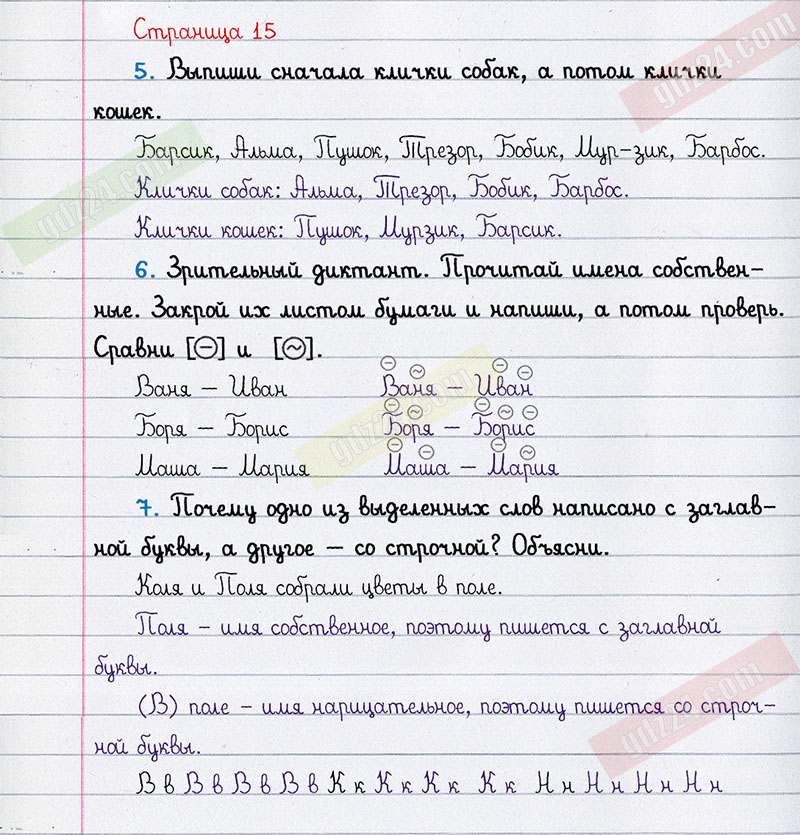 Страница 15
5. Выпиши сначала клички собак, а потом клички
кошек.
Барсик, Альма, Пушок, Трезор, Бобик, Мур-зик, Барбос.
Клички собак: Альма, Трезор, Бобик, Барбос.
Клички кошек: Пушок, Мурзик, Барсик.
6. Зрительный диктант. Прочитай имена собствен-
ные. Закрой их листом бумаги и напиши, а потом проверь.
Сравни [–] и [~].
Ваня – Иван Ваня – Иван
Боря – Борис Боря – Борис
Маша – Мария Маша – Мария
7. Почему одно из выделенных слов написано с заглав-
ной буквы, а другое – со строчной? Объясни.
Коля и Поля собрали цветы в поле.
Поля – имя собственное, поэтому пишется с заглавной
буквы.
(В) поле – имя нарицательное, поэтому пишется со строч-
ной буквы.
В в В в В в В в К к К к К к К к Н н Н н Н н Н н
gdz24.com
gdz24.com
gdz24.com
gdz24.com